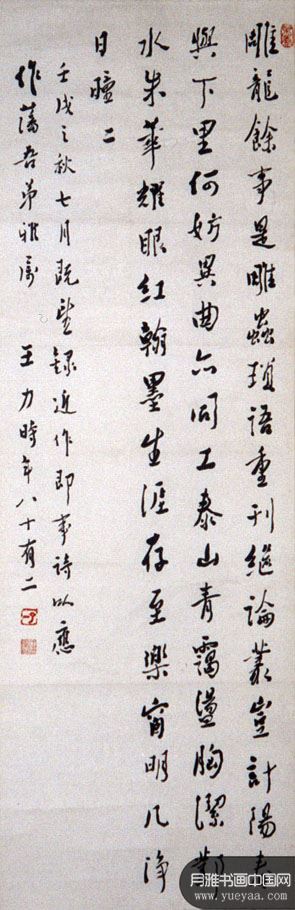 雕龍餘事是雕蟲瑣語重刊繼論叢豈計陽春
與下里何妨異曲亦同工泰山青靄盪胸潔鄴
水朱華耀眼紅翰墨生涯存至樂窗明几淨
日曈二
壬戌之秋七月既望録近作即事詩以應
作藩吾弟雅屬 王力時年八十有二
月雅书画中国网
www.yueyaa.com